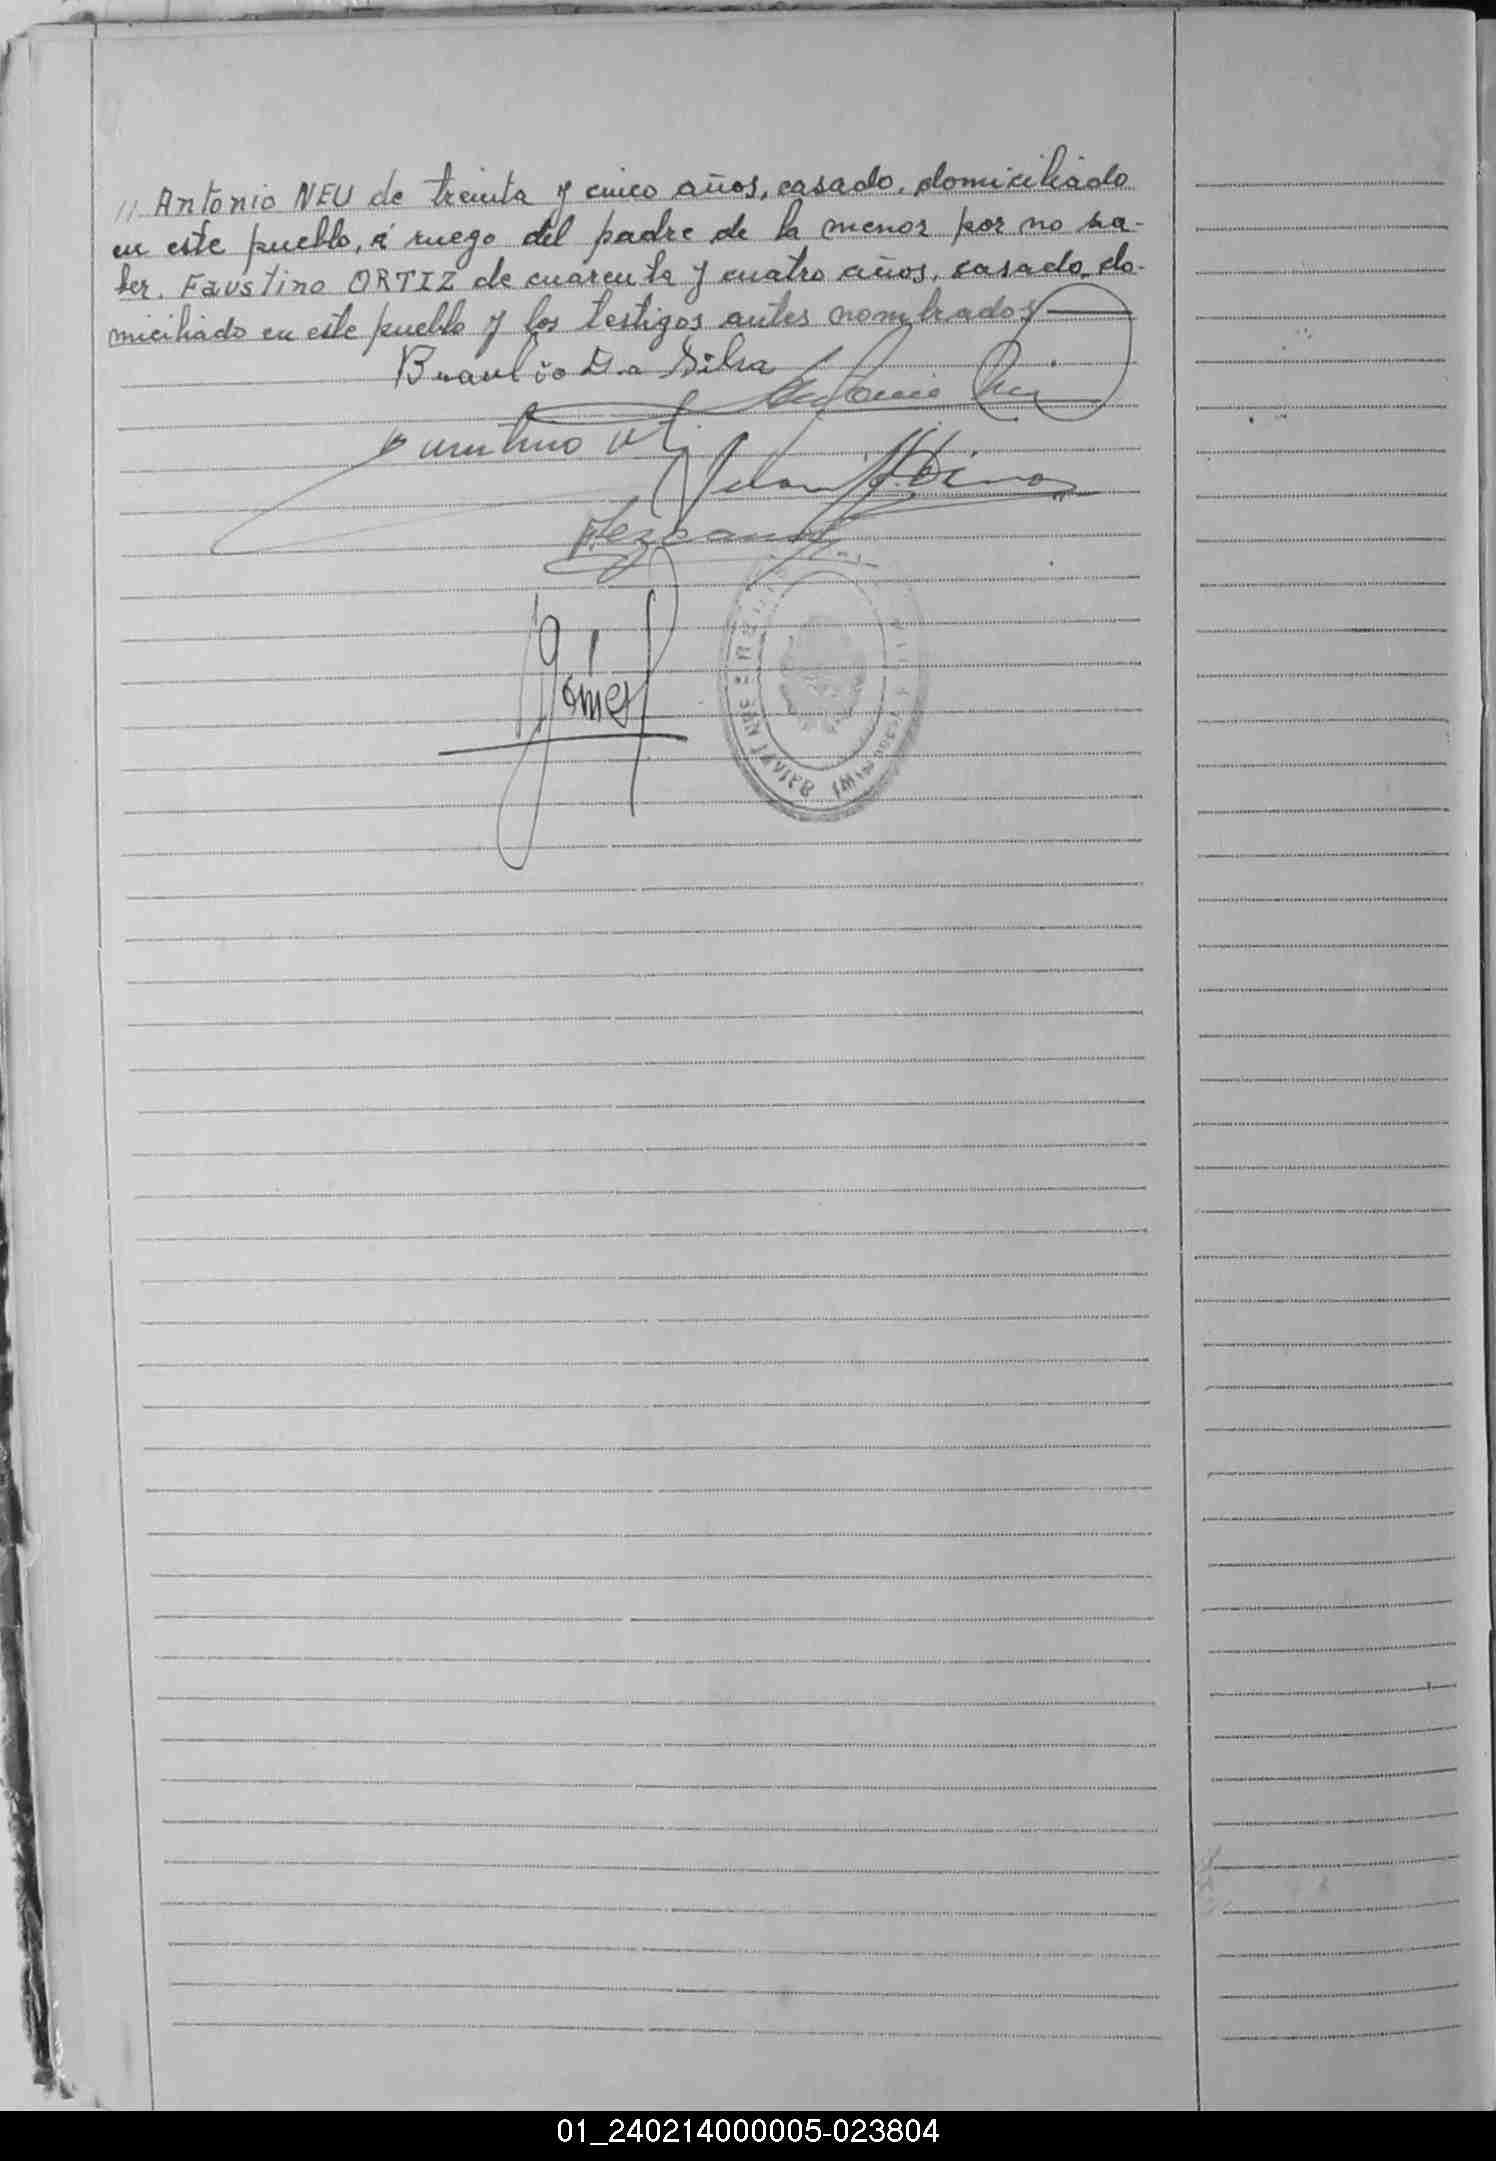 11. Antonio NEU de treinta y cinco años, casado, domiciliado
en este pueblo, á ruego del padre de la menor por no sa-
ber. Faustino ORTIZ de cuarenta y cuatro años, casado, do-
miciliado en este pueblo y los testigos antes nombrados
Braulio Da Silva
Antonio
Faustino
Lezcano
Gomes
SAN JAVIER
01_240214000005-023804